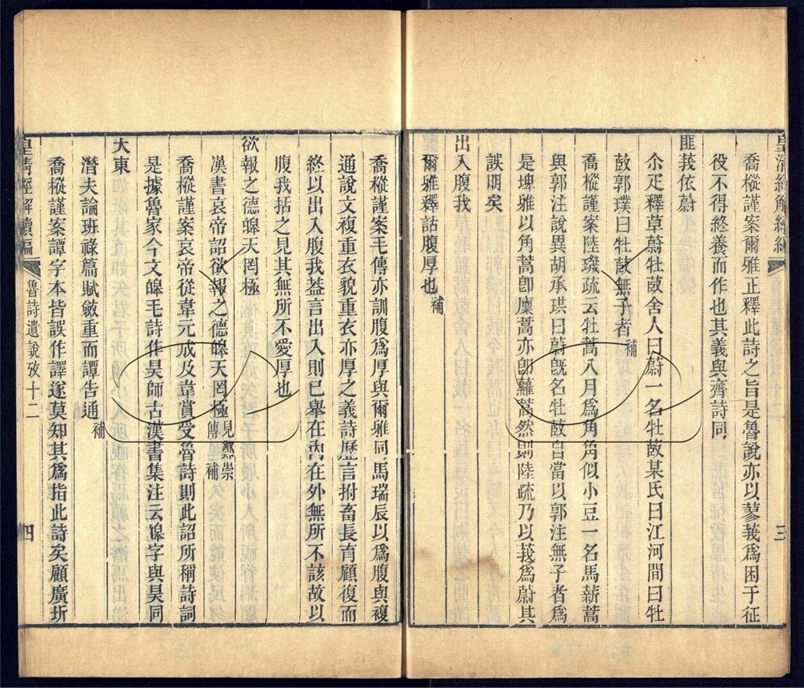 皇清經解續編
三
喬樅謹案爾雅正釋此詩之旨是魯說亦以蓼莪爲困于征
役不得終養而作也其義與齊詩同
匪莪依蔚
尒疋釋草蔚牡菣舍人曰蔚一名牡菣某氏曰江河間曰牡
菣郭璞曰牡菣無子者補
喬樅謹案陸璣疏云牡蒿八月爲角角似小豆一名馬薪蒿
與郭注說異胡承珙曰蔚旣名牡菣自當以郭注無子者爲
是埤雅以角蒿卽廩蒿亦卽蘿蒿然則陸疏乃以莪爲蔚其
誤明矣
出入腹我
爾雅釋詁腹厚也補
喬樅謹案毛傳亦訓腹爲厚與爾雅同馬瑞辰以爲腹與複
通說文複重衣貌重衣亦厚之義詩歷言拊畜長育顧復而
終以出入腹我葢言出入則已舉在內在外無所不該故以
腹我括之見其無所不愛厚也
欲報之德皞天罔極
漢書哀帝詔欲報之德皞天罔極見鄭崇傳補
喬樅謹案哀帝從韋元成及韋賞受魯詩則此詔所稱詩詞
是據魯家今文皞毛詩作昊師古漢書集注云皞字與昊同
大東
潛夫論班祿篇賦斂重而譚告通補
喬樅謹案譚字本皆誤作譯遂莫知其爲指此詩矣顧廣圻
皇淸經解續編
魯詩遺說攷十二
四